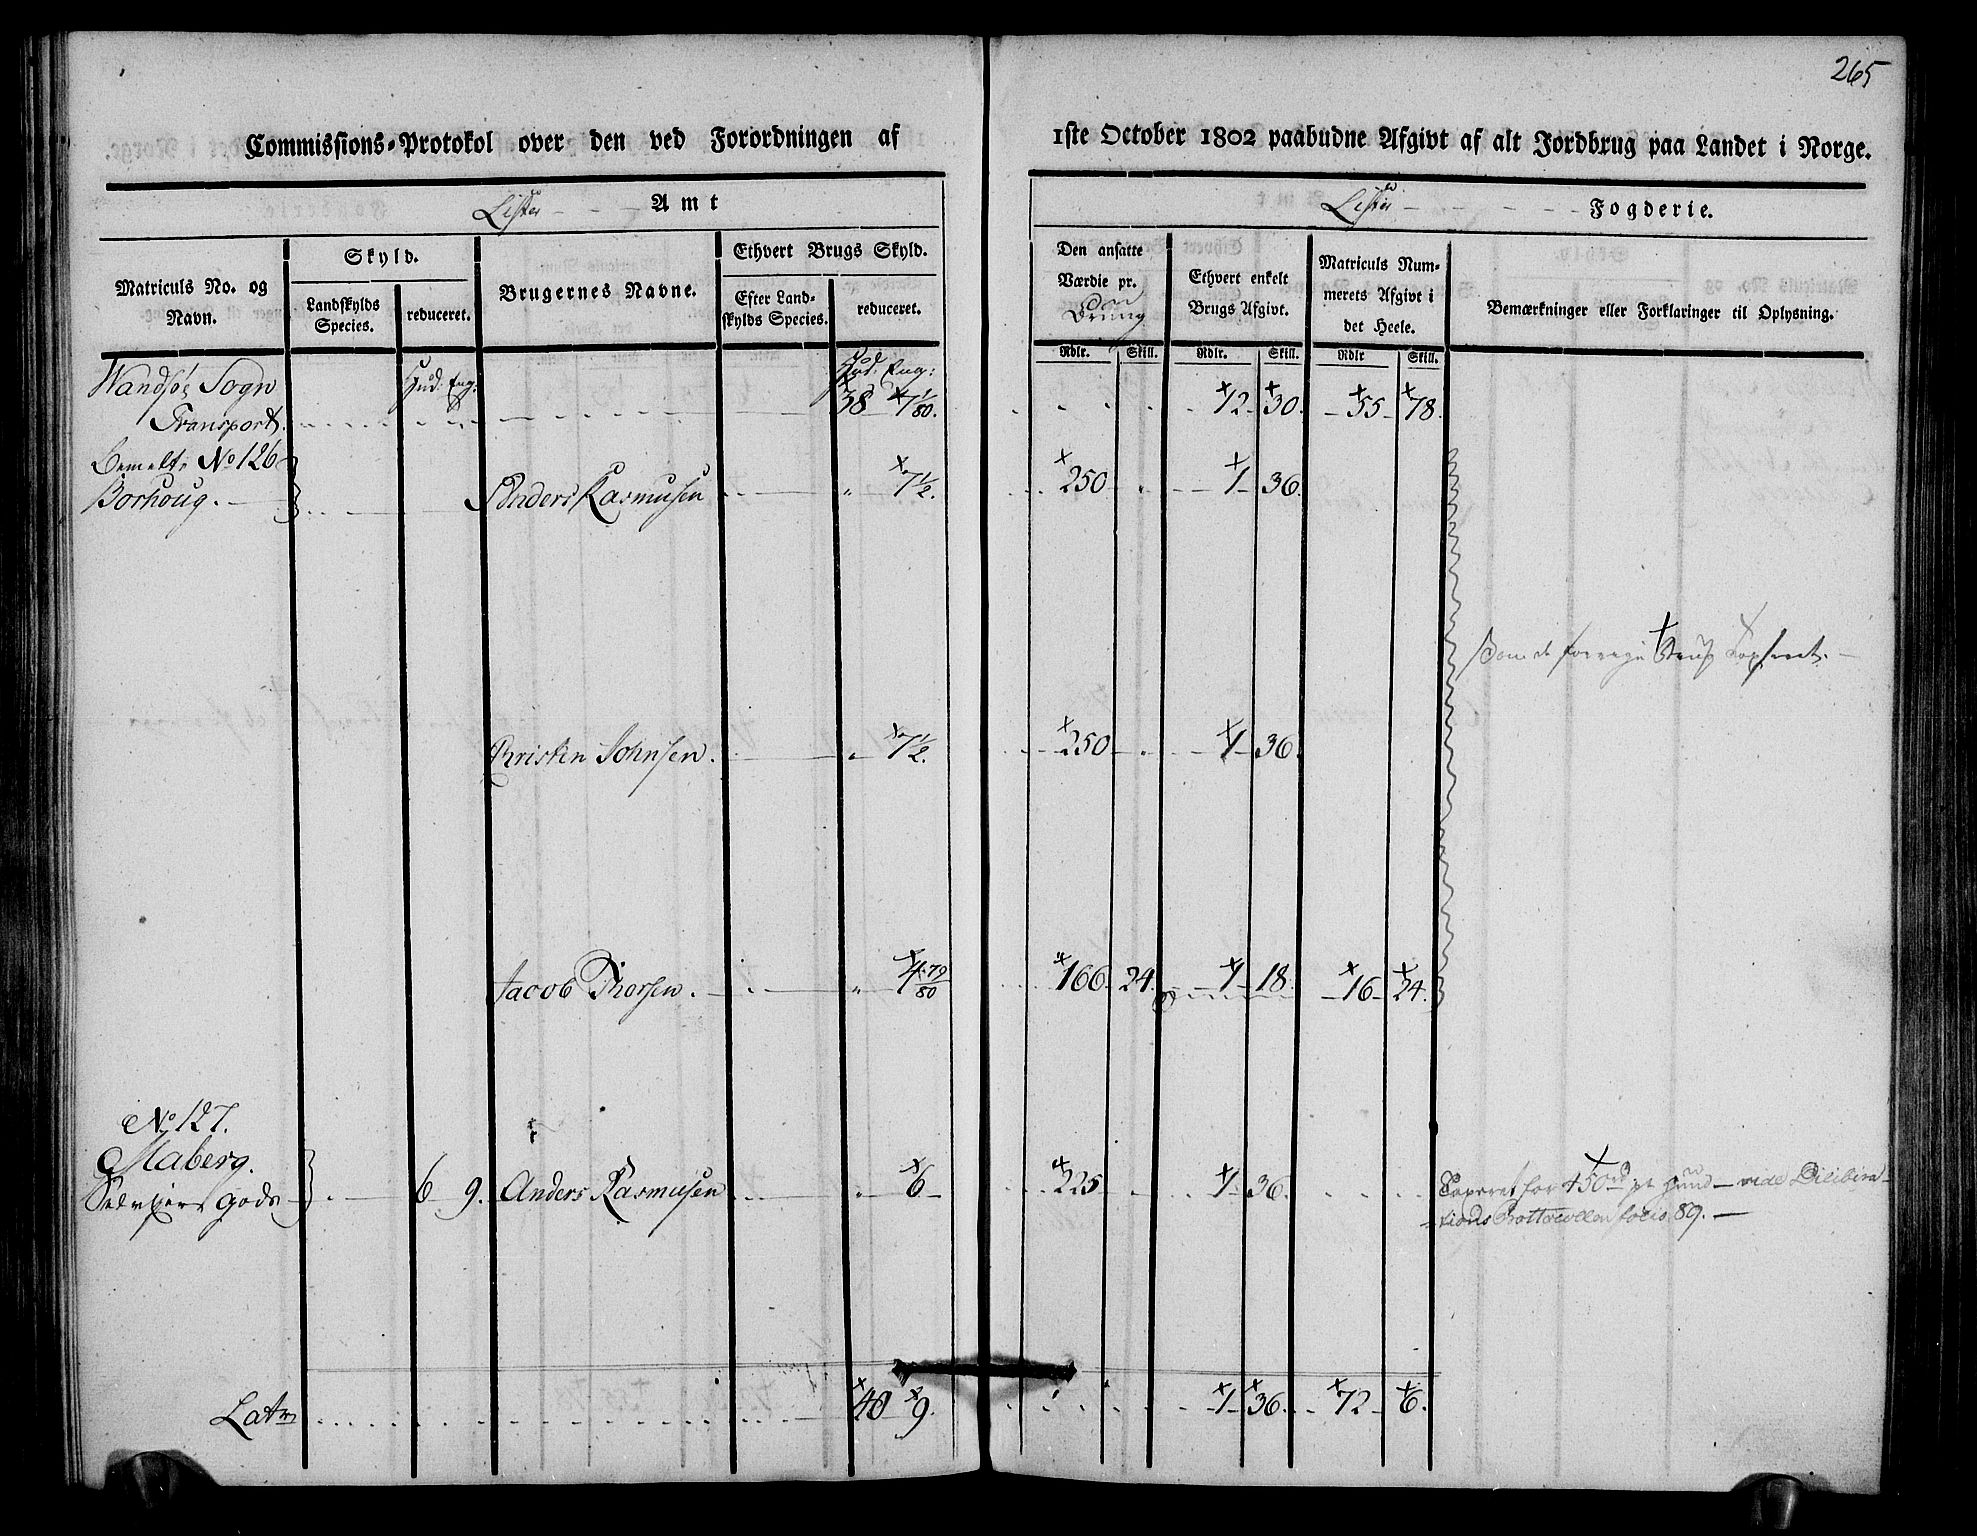 265
Commissions-Protokol over den ved Forordningen af 1ste October 1802 paabudne Afgivt af alt Jordbrug paa Landet i Norge.
Lister Amt
Lister Fogderie.
Matriculs No. og Navn.
Skyld.
Landskylds Species.
reduceret.
Brugernes Navne.
Ethvert Brugs Skyld.
Efter Landskylds Species.
reduceret.
Den ansatte Værdie pr.
Ethvert enkelt Brugs Afgivt.
Matriculs Nummerets Afgivt i det Heele.
Bemærkninger eller Forklaringer til Oplysning.
Rdlr. Skill. Rdlr. Skill. Rdlr Skill.
Hud: Eng: Hud: Eng:
Wandsøe Sogn
Transport. 38 7 1/80. 12 30. 55 78.
Bemelte No 126
Borhoug. Anders Rasmusen " 7 1/2. 250 1 36.
Christen Johnsen. " 7 1/2. 250 1 36.
Jacob Thorsen. " 4 79/80 166 24. 1 18. 16 24.
No 127.
Maberg.
Selveier gods 6 9. Anders Rasmusen " 6 225 1 36.
Taxeret for 450 rd pr Hud vide Delibera-
tions Protocollen folio 89.
Latr 40 9. 1 36. 72 6.